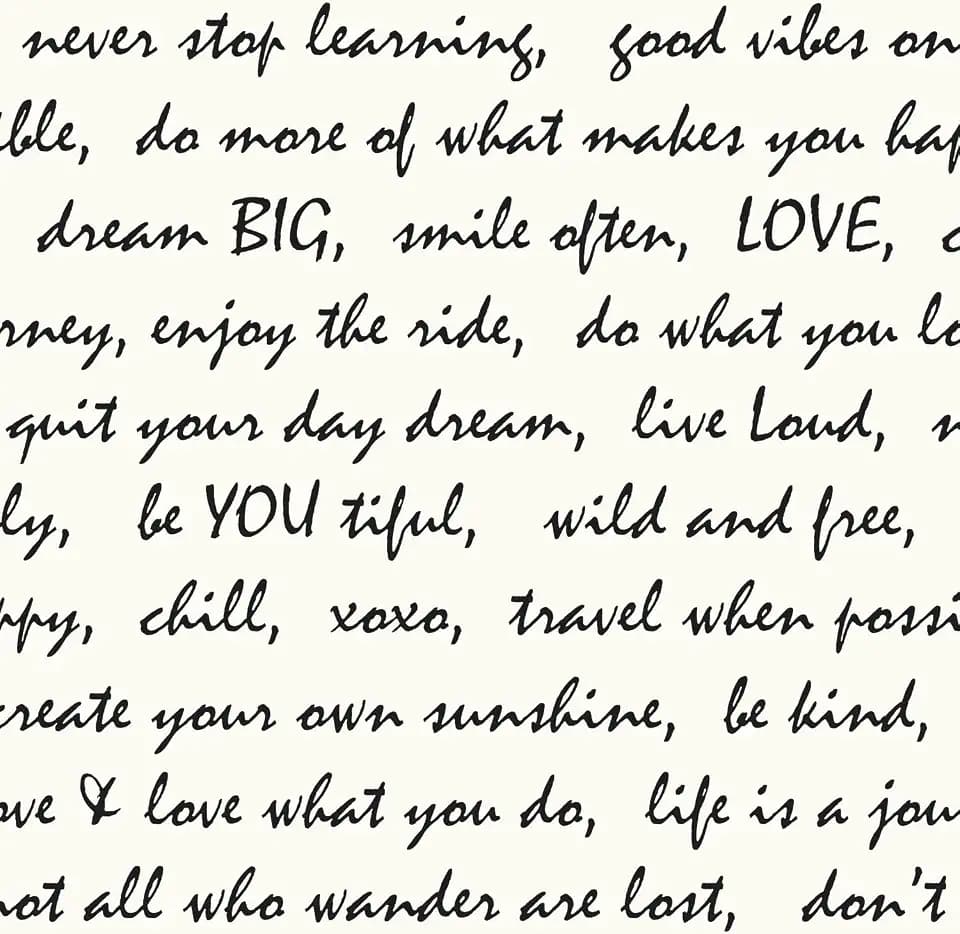 never stop learning, good vibes on
ble, do more of what makes you hap
dream BIG, smile often, LOVE,
rney, enjoy the ride, do what you lo
quit your day dream, live Loud,
ly, be YOU tiful, wild and free,
ppy, chill, xoxo, travel when possi
create your own sunshine, be kind,
ove & love what you do, life is a jou
not all who wander are lost, don't